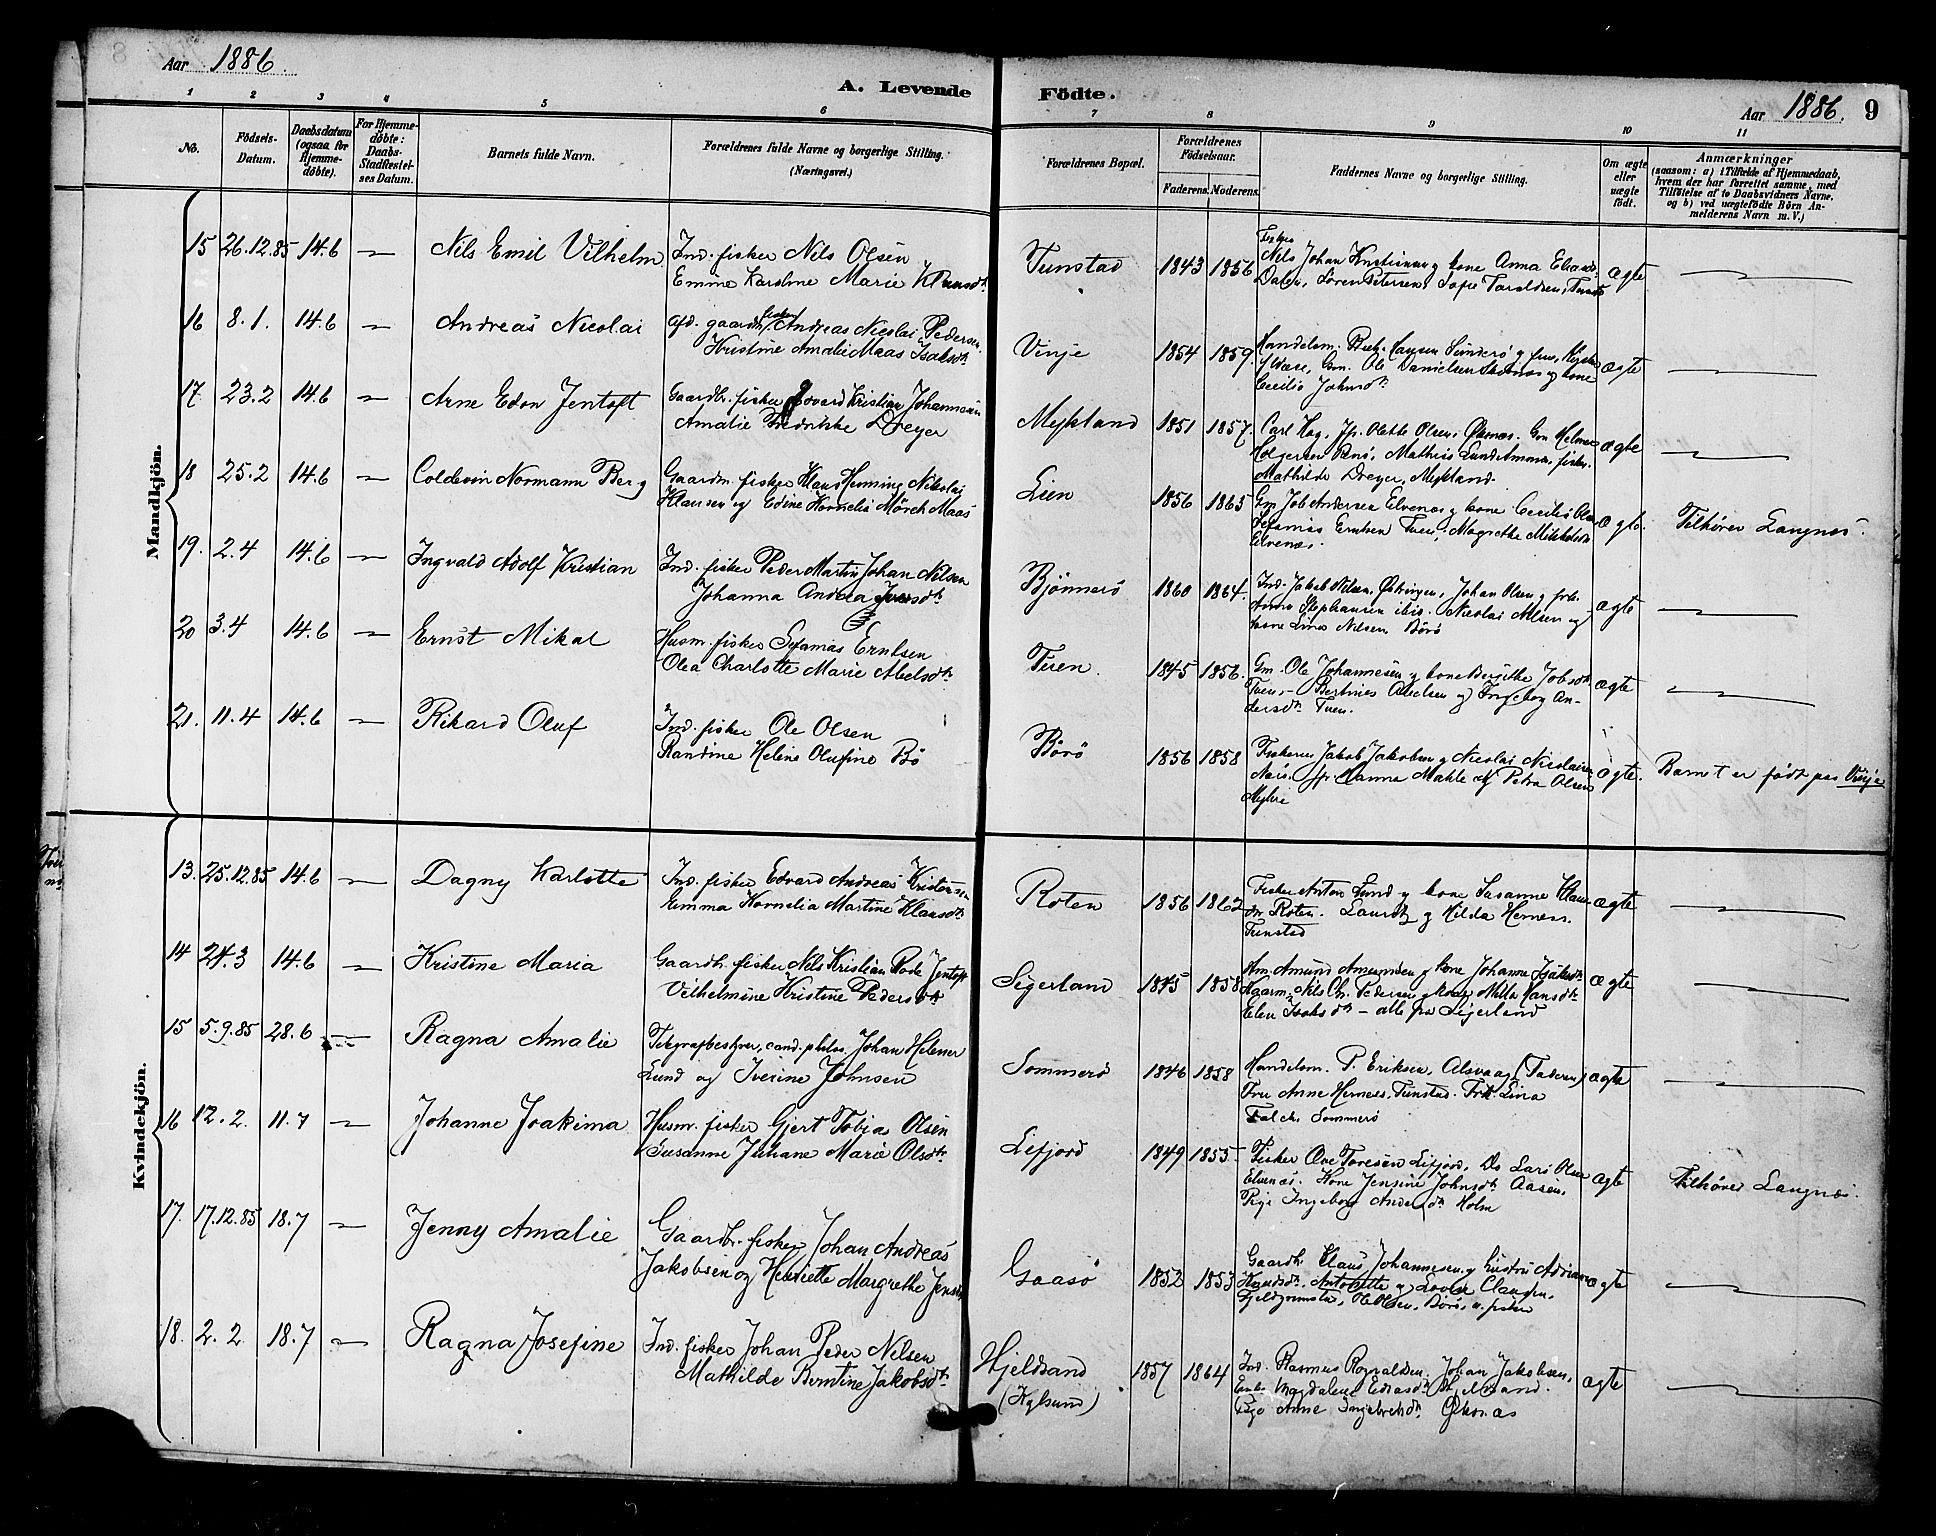 8
Aar 1886.
A. Levende Födte.
Aar 1886. 9
1 2 3 4 5 6 7 8 9 10 11
No.
Födsels-Datum.
Daabsdatum (ogsaa for Hjemme-döbte).
For Hjemme-döbte: Daabs-Stadfestel-ses Datum.
Barnets fulde Navn.
Forældrenes fulde Navne og borgerlige Stilling. (Næringsvei.)
Forældrenes Bopæl.
Forældrenes Födselsaar.
Faderens. Moderens.
Faddernes Navne og borgerlige Stilling.
Om ægte eller uægte født.
Anmærkninger
(saasom: a) i Tilfælde af Hjemmedaab,
hvem der har forrettet samme, med
Tilföielse af to Daabsvidners Navne,
og b) ved uægtefödte Börn An-
melderens Navn m. V.)
Mandkjön.
15 26.12.85 14.6 — Nils Emil Vilhelm
Ind. fisker Nils Olsen
Emine Karoline Marie
Tunstad 1843 1856
Fisker
Nils Johan Kristiansen og kone Anna
Søren Petersen, Sofie Taraldsen, Tunst
ægte —
16 8.1. 14.6 — Andreas Nicolai
afd. gaardb. fisker Andreas Nicolai Pedersen
Kristine Amalie Maas Isaksdtr
Vinje 1854 1859.
Handelsm. Hansen Sunderø og frue,
Gm. Ole Danielsen og kone
Cecilie Johnsdtr
ægte —
17. 23.2 14.6 — Arne Edon Jentoft
Gaardbr. fisker Edvard Kristian Johannesen
Amalie Fredrikke Dreyer
Mykland 1851 1857.
Carl Hag, Jfr. Olette Olsen, Øksnæs. Gm Helmer
Holgersen Mathias fisker
Mathilde Dreyer, Mykland
ægte —
18 25.2 14.6 — Coldevin Normann Berg
Gaardm. fisker Klaus Henning Nikolai
Klausen og Edine Kornelia Mörch Maas
Lien 1856 1865
Gm Job Andersen Elvenæs og kone Cecilie Olsen
Sefanias Erntsen Tuen, Magrethe Mikkelsen
Elvenæs.
ægte. Tilhører Langnæs.
19. 2.4 14.6 — Ingvald Adolf Kristian
Ind. fisker Peder Martin Johan Nilsen
Johanna Andrea
Bjönnerö 1860 1864.
Ind. Jakob Nilsen, Østringen, Johan Olsen og frk.
Anna Stephansen ibid. Nicolai Nilsen og
kone Lina Nilsen Börö
ægte —
20 3.4 14.6 — Ernst Mikal
Husm. fisker Sefanias Erntsen
Olea Charlotte Marie Abelsdtr
Tuen. 1845 1856.
Gm. Ole Johannesen og kone Bergithe Jobsdtr
Tuen, – Bertinus Abelsen og Ingeborg An-
dersdtr Tuen.
ægte —
21. 11.4 14.6 — Rikard Oluf
Ind. fisker Ole Olsen
Randine Heline Olufine Bö
Börö 1856 1858
Fiskerne Jakob Jakobsen og Nicolai Nicolaisen
Jfr Hanna Mahle og Petra Olsen
Myhre
ægte. Barnet er født paa Vinje
Kvindekjön.
13. 25.12.85 14.6 — Dagny Karlotte
Ind. fisker Edvard Andreas Kristensen
Emma Kornelia Martine Klausdtr
Roten 1856 1862
Fisker Anton Lund og kone Susanne Klaus
dtr Roten. Lauritz og Hilda Hernæs
Tunstad
ægte —
14 24.3 14.6 — Kristine Maria
Gaardb. fisker Nils Kristian Rode Jentoft
Vilhelmine Kristine Pedersdtr
Sigerland 1845 1858
Hm. Amund Amundsen og kone Johanna Isaksdtr
Gaarm. Nils Chr. Pedersen og kone Milla Hansdtr
Elen Isaksdtr – alle fra Sigerland
ægte —
15 5.9.85 28.6 — Ragna Amalie
Telegrafbestyrer, cand. philos. Johan Helmer
Lund og Iverine Johnsen
Sommerö 1846 1858
Handelsm. P. Eriksen, Alsvaag (Faderen)
Fru Anne Hernæs, Tunstad. Frk. Lina
Falch Sommerö
ægte —
16 12.2. 11.7 — Johanne Joakima
Husm. fisker Gjert Tobias Olsen
Susanne Juliane Marie Olsdtr
Lifjord 1849 1855
Fisker Ove Toresen Lifjord. Do Lars Olsen
Elvenæs. Kone Jensine Johnsdtr Aasen,
Pige Ingeborg Andersdtr Holm
ægte Tilhører Langnæs.
17. 17.12.85 18.7 — Jenny Amalie
Gaardbr. fisker Johan Andreas
Jakobsen og Henriette Margrethe Jensen
Gaasö 1852 1853
Gaardb. Klaus Johannesen og hustru Adriane
Knudsdtr, Antonette og Lovise Clausen,
Ole Olsen, Börö, u. fisker
ægte —
18. 2.2 18.7 — Ragna Josefine
Ind. fisker Johan Peder Nilsen
Mathilde Berntine Jakobsdtr
Hjeldsand
(Kylsund) 1857 1864
Ind. Rasmus Rognaldsen, Johan Jakobsen,
Enke Magdalena Hjeldsand.
Pige Anne Ingebretsdtr Øksnæs
ægte —